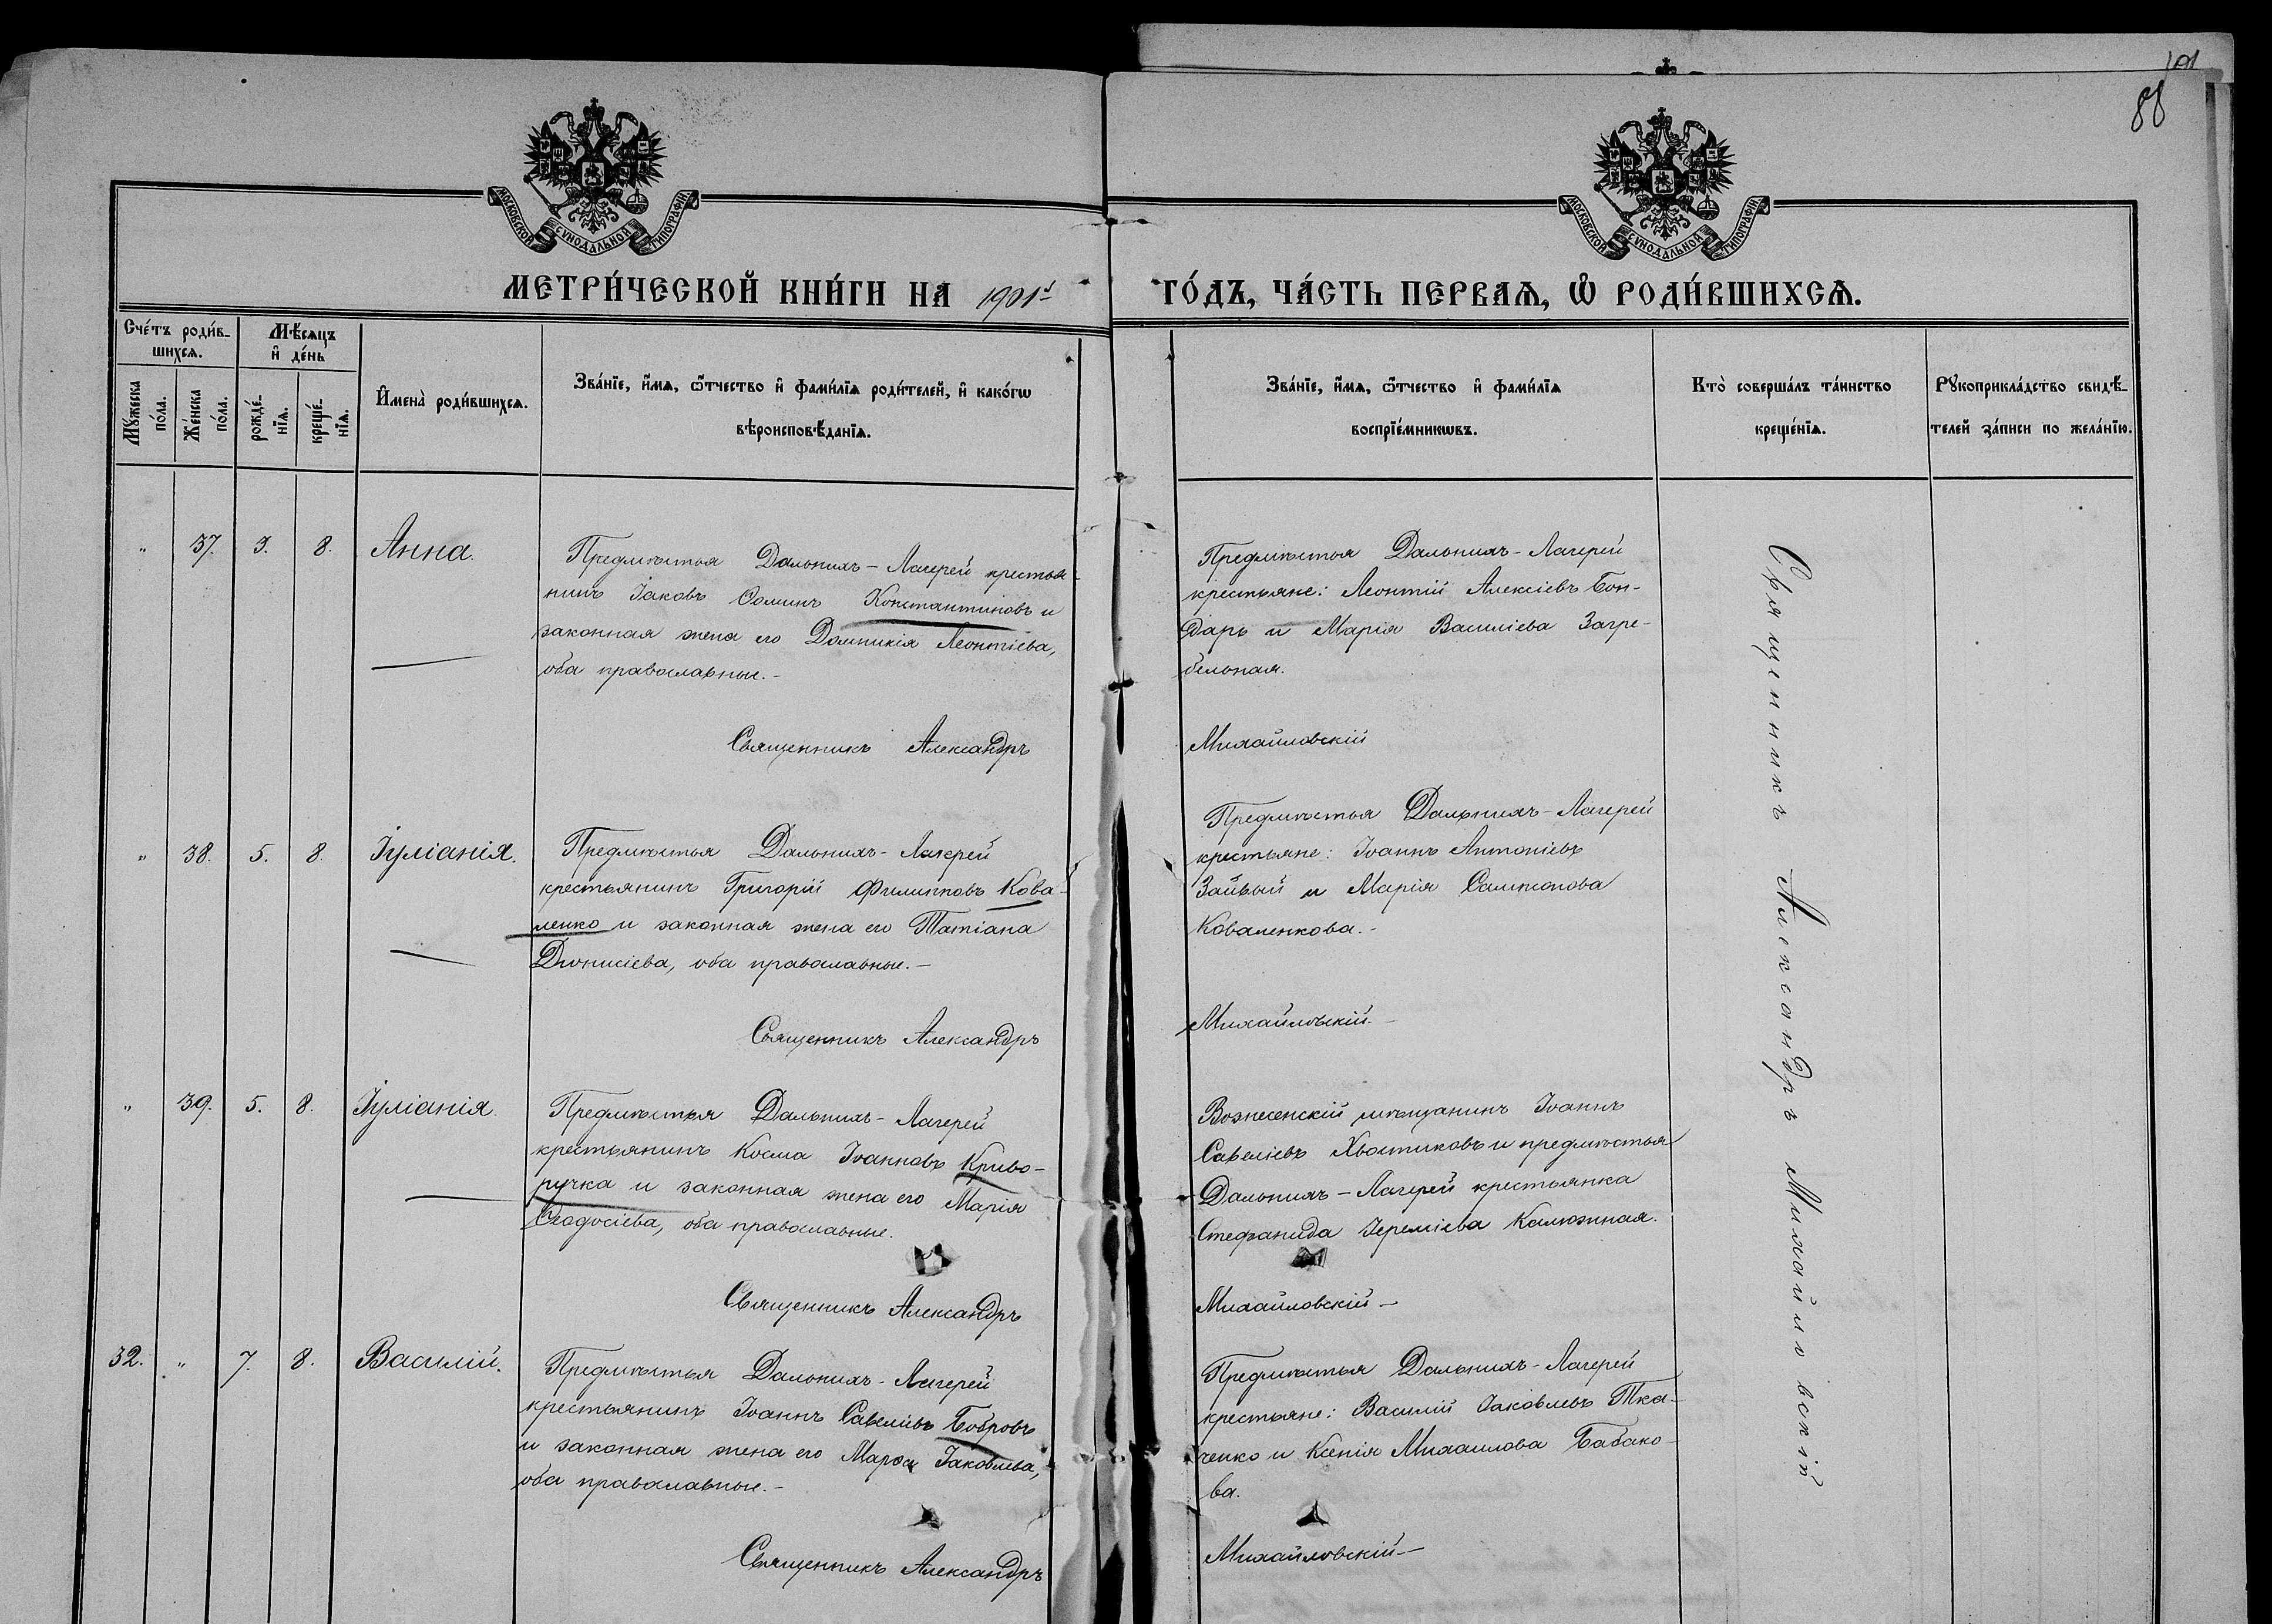 101
88
МОСКОВСКОЙ СѴНОДАЛЬНОЙ ТИПОГРАФІИ.
МОСКОВСКОЙ СѴНОДАЛЬНОЙ ТИПОГРАФІИ.
МЕТРИ́ЧЕСКОЙ КНИ́ГИ НА 1901й ГО́ДЪ, ЧА́СТЬ ПЕРВАѦ, Ѡ҆ РОДИ́ВШИХСѦ.
Сче́тъ роди́в-
шихсѧ.
Мѣ́сѧцъ
и҆ де́нь
Мꙋ́жеска
по́ла.
Же́нска
по́ла.
рожде́-
нїѧ.
креще́-
нїѧ.
И҆мена̀ роди́вшихсѧ.
Зва́нїе, и҆́мѧ, ѻ҆́тчество и҆ фами́лїѧ роди́телей, и҆ како́гѡ
вѣроисповѣ́данїѧ.
Зва́нїе, и҆́мѧ, ѻ҆́тчество и҆ фами́лїѧ
воспрїе́мникѡвъ.
Кто̀ соверша́лъ та́инство
креще́нїѧ.
Рꙋкоприкла́дство свидѣ́-
телей за́писи по жела́нїю.
" 37. 3. 8. Анна.
Предмѣстья Дальнихъ-Лагерей крестья-
нинъ Іаковъ Ѳоминъ Константиновъ и
законная жена его Домникія Леонтіева,
оба православные.-
Предмѣстья Дальнихъ-Лагерей
крестьяне: Леонтій Алексіевъ Бон-
дарь и Марія Василіева Загре-
бельная.
Священникъ Александръ Михайловскій
" 38. 5. 8. Іуліанія.
Предмѣстья Дальнихъ-Лагерей
крестьянинъ Григорій Филипповъ Кова-
ленко и законная жена его Татіана
Діонисіева, оба православные.-
Предмѣстья Дальнихъ-Лагерей
крестьяне: Іоаннъ Антоніевъ
и Марія Сампсонова
Коваленкова.-
Священникъ Александръ Михайловскій.-
" 39. 5. 8. Іуліанія.
Предмѣстья Дальнихъ-Лагерей
крестьянинъ Косма Іоанновъ Криво-
ручка и законная жена его Марія
Ѳеодосіева, оба православные.
Вознесенскій мѣщанинъ Іоаннъ
Савеліевъ Хвостиковъ и предмѣстья
Дальнихъ-Лагерей крестьянка
Стефанида Іереміева Калюжная.
Священникъ Александръ Михайловскій-
32. " 7. 8. Василій.
Предмѣстья Дальнихъ-Лагерей
крестьянинъ Іоаннъ Савеліевъ Бобровъ
и законная жена его Марѳа Іаковлева,
оба православные.-
Предмѣстья Дальнихъ-Лагерей
крестьяне: Василій Іаковлевъ Тка-
ченко и Ксенія Михаилова Бабако-
ва.
Священникъ Александръ Михайловскій-
Священникъ Александръ Михайловскій